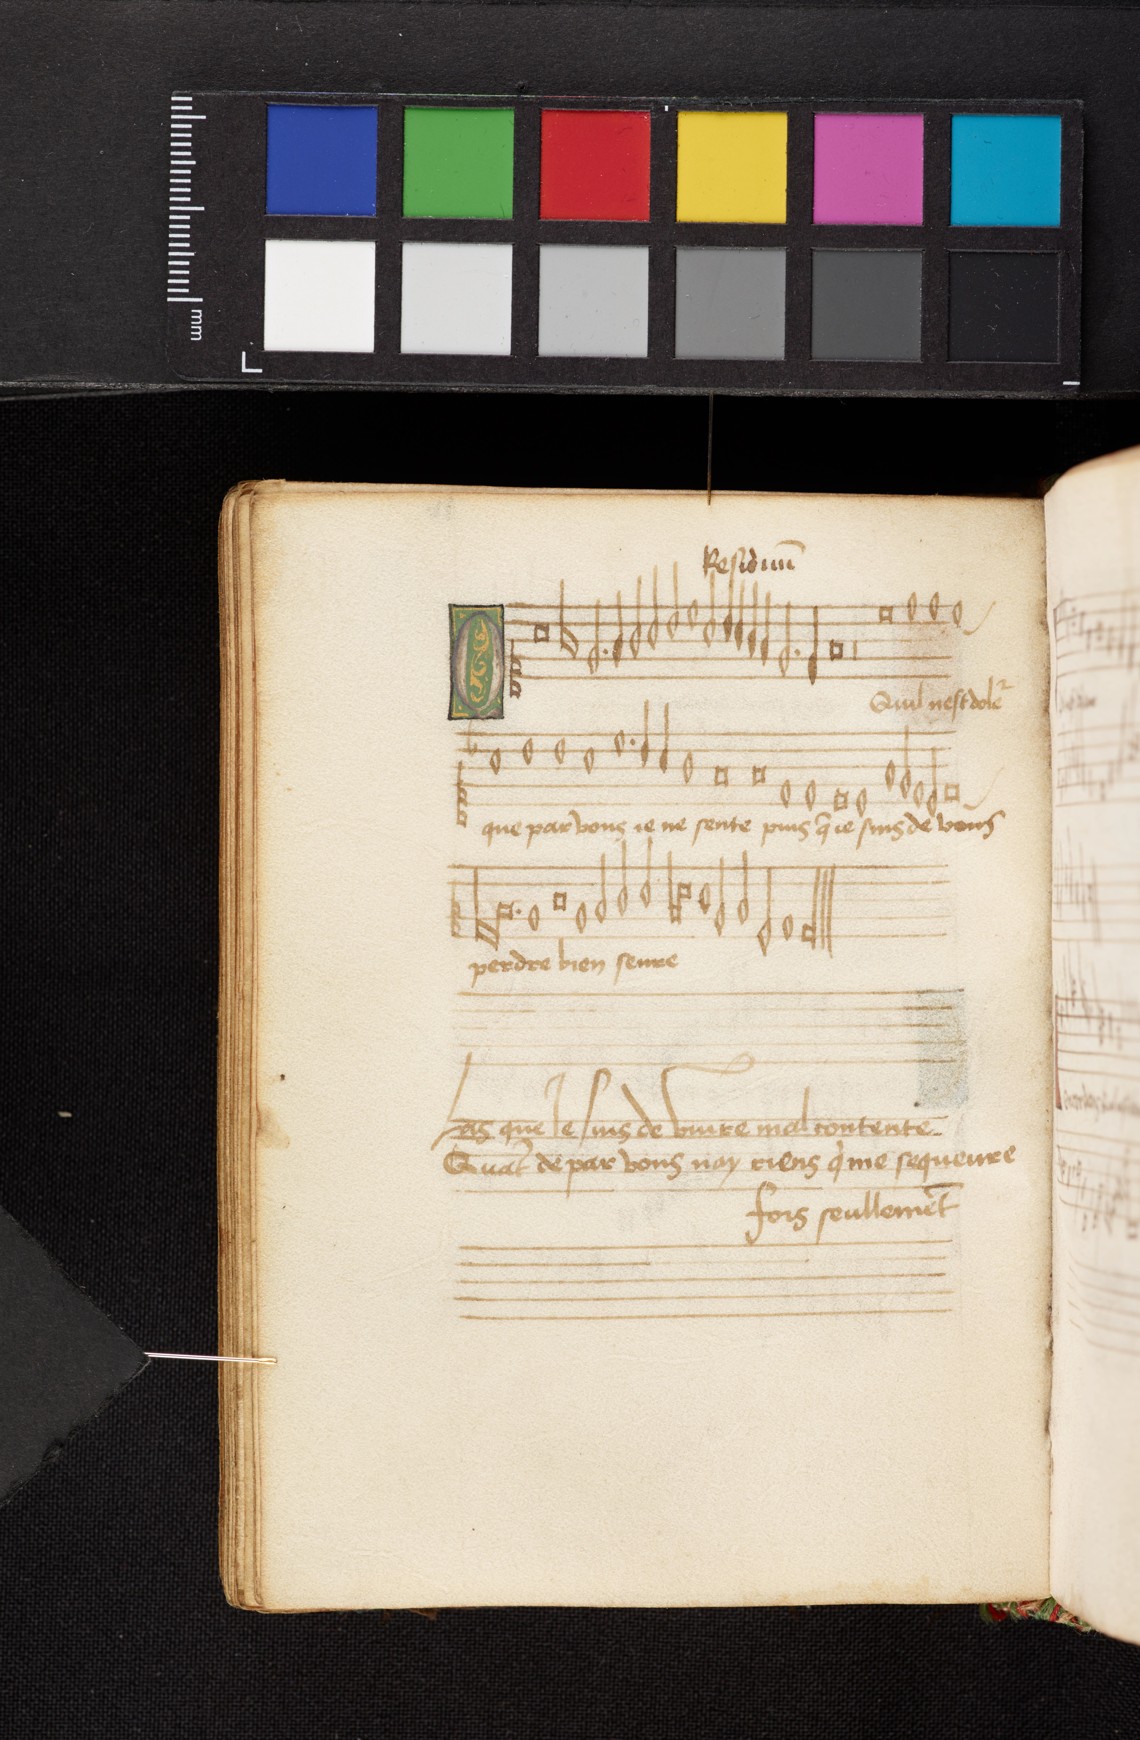 mm
Residuũ
Q
Quil nest dole²
que par vous ie ne sente puis q̃ ie suis de vous
perdre bien seure
Las que Ie suis de viure mal contente
Quat̃ de par vous nay riens q̃ me sequeure
fors seullemẽt